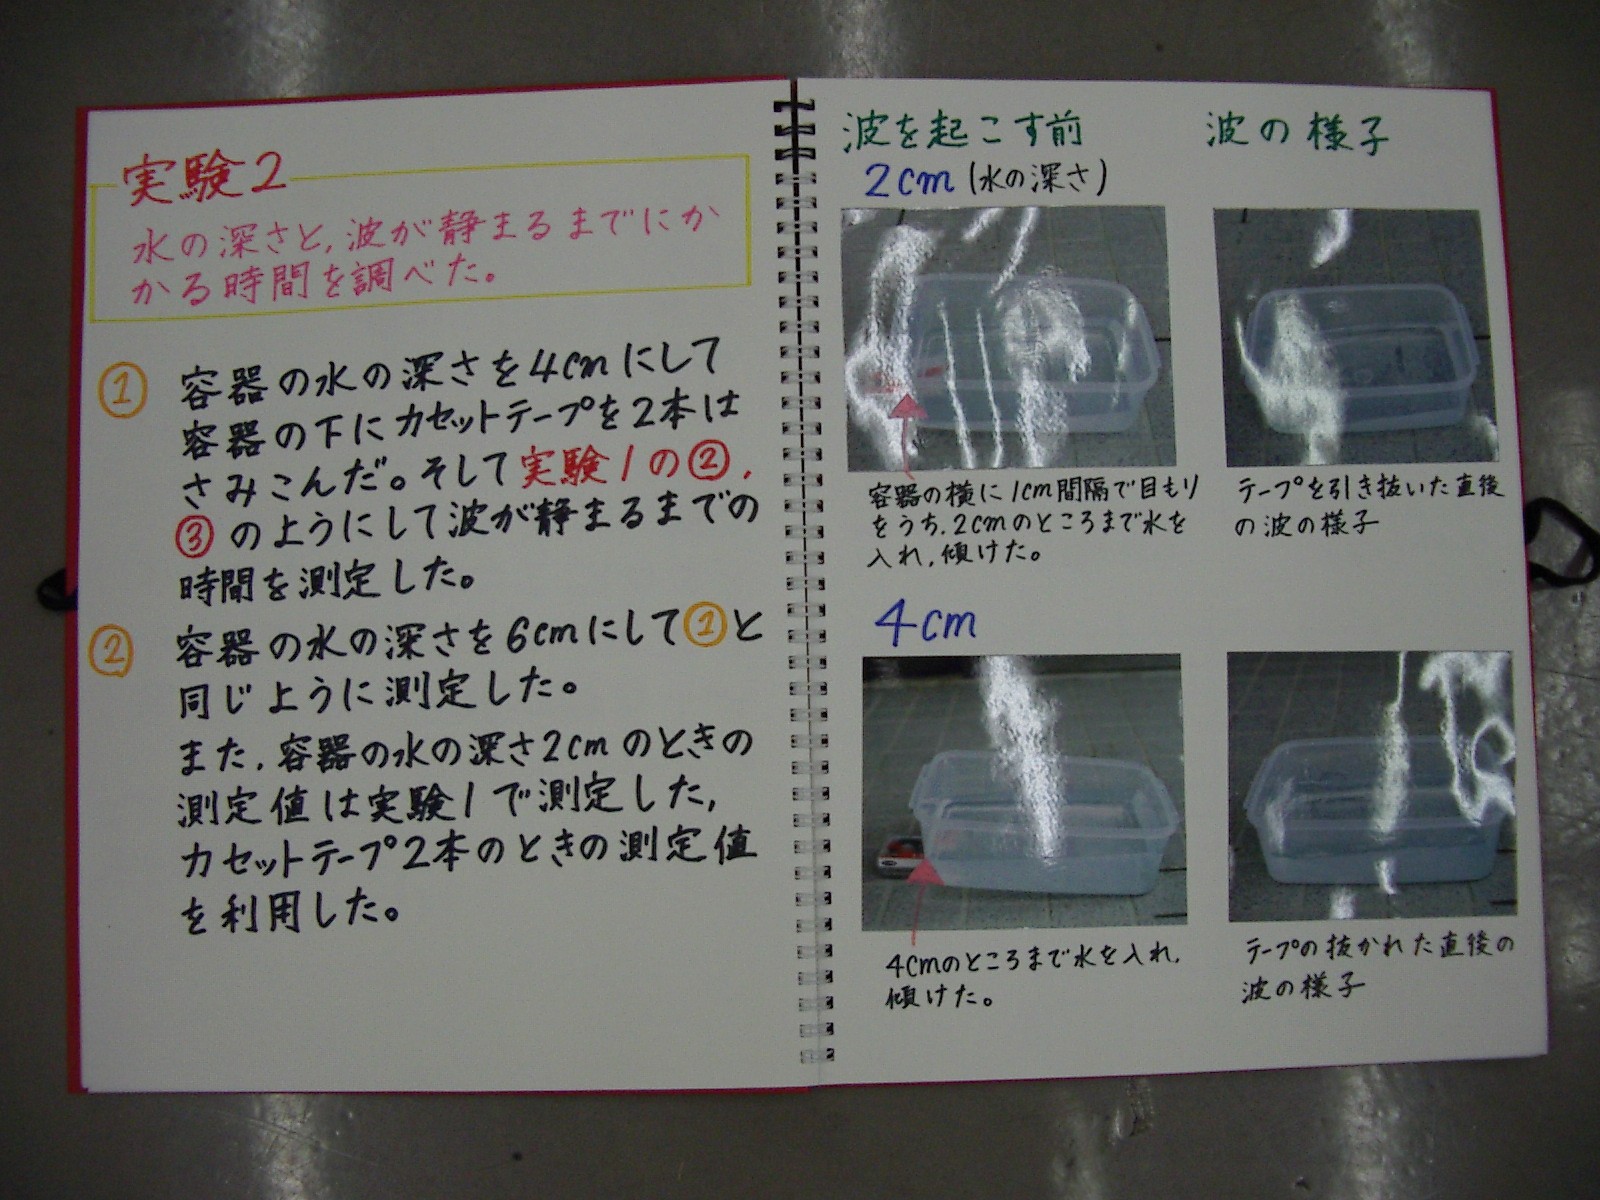 実験2
水の深さと,波が静まるまでにか
かる時間を調べた。
① 容器の水の深さを4cmにして
容器の下にカセットテープを2本は
さみこんだ。そして実験1の②,
③のようにして波が静まるまでの
時間を測定した。
② 容器の水の深さを6cmにして①と
同じように測定した。
また,容器の水の深さ2cmのときの
測定値は実験1で測定した,
カセットテープ2本のときの測定値
を利用した。
波を起こす前
波の様子
2cm(水の深さ)
容器の横に1cm間隔で目もり
をうち,2cmのところまで水を
入れ,傾けた。
テープを引き抜いた直後
の波の様子
4cm
4cmのところまで水を入れ,
傾けた。
テープの抜かれた直後の
波の様子